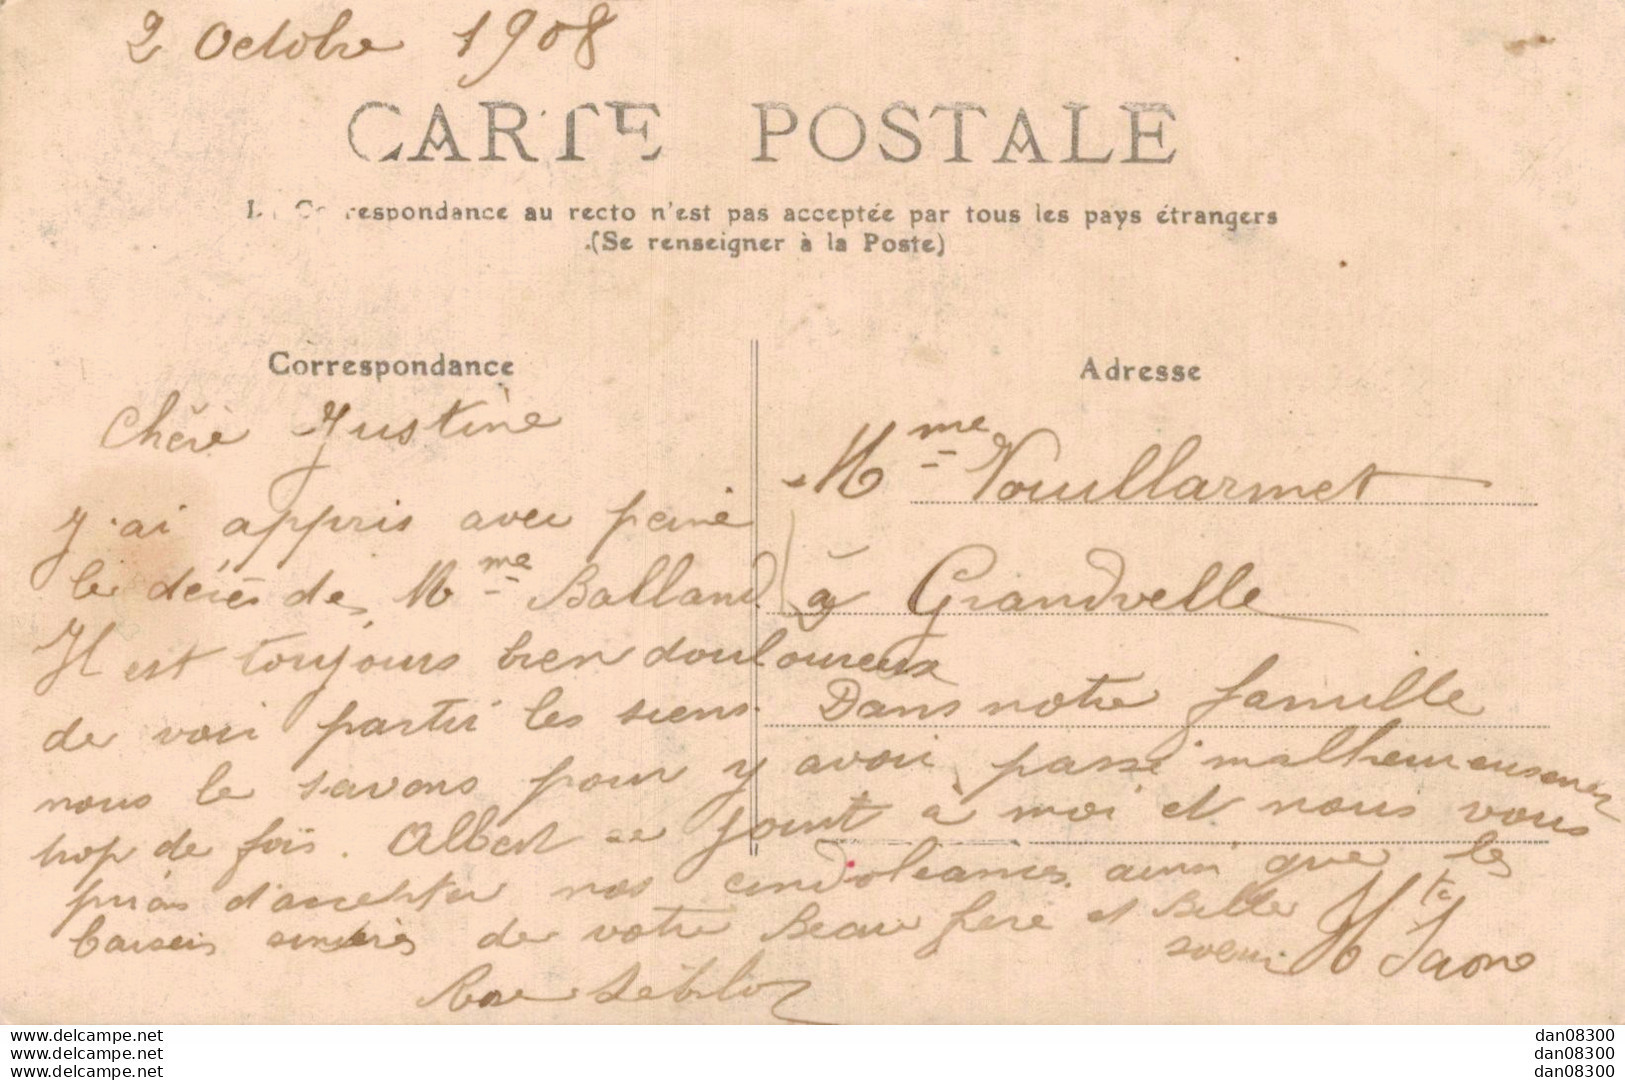 2 Octobre 1908
CARTE POSTALE
La Correspondance au recto n'est pas acceptée par tous les pays étrangers
(Se renseigner à la Poste)
Correspondance
Adresse
Chère Justine
J'ai appris avec peine
le décès de Mme Balland
Il est toujours bien douloureux
de voir partir les siens. Dans notre famille
nous le savons pour y avoir passé malheureusement
trop de fois. Albert se joint à moi et nous vous
prions d'accepter nos condoléances ainsi que les
baisers sincères de votre Beau frère et Belle
soeur
Hte Saone
Mme Vouillarmet
à Grandvelle
www.delcampe.net
www.delcampe.net
www.delcampe.net
dan08300
dan08300
dan08300